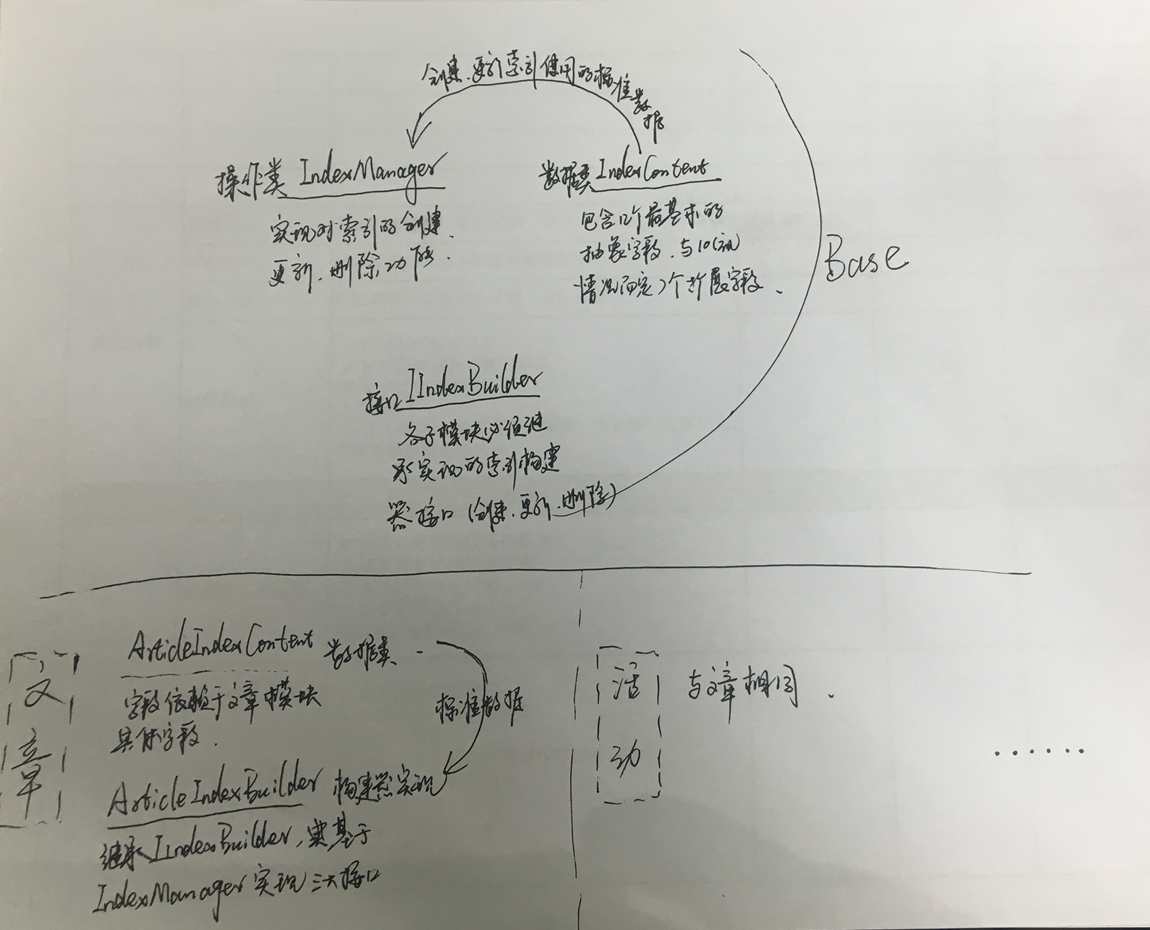 创建、更新索引使用的标准数据
操作类 IndexManager
实现对索引的创建、
更新、删除功能.
数据类 IndexContent
包含12个最基本的
抽象字段、与10(视
情况而定)个扩展字段、
Base
接口 IIndexBuilder
各子模块必须继
承实现的索引构建
器接口 (创建、更新、删除)
文
章
ArticleIndexContent 数据类.
字段依赖于文章模块
具体字段.
标准数据
ArticleIndexBuilder 构建器实现
继承 IIndexBuilder, 基于
IndexManager 实现三大接口
活
动
与文章相同.
......